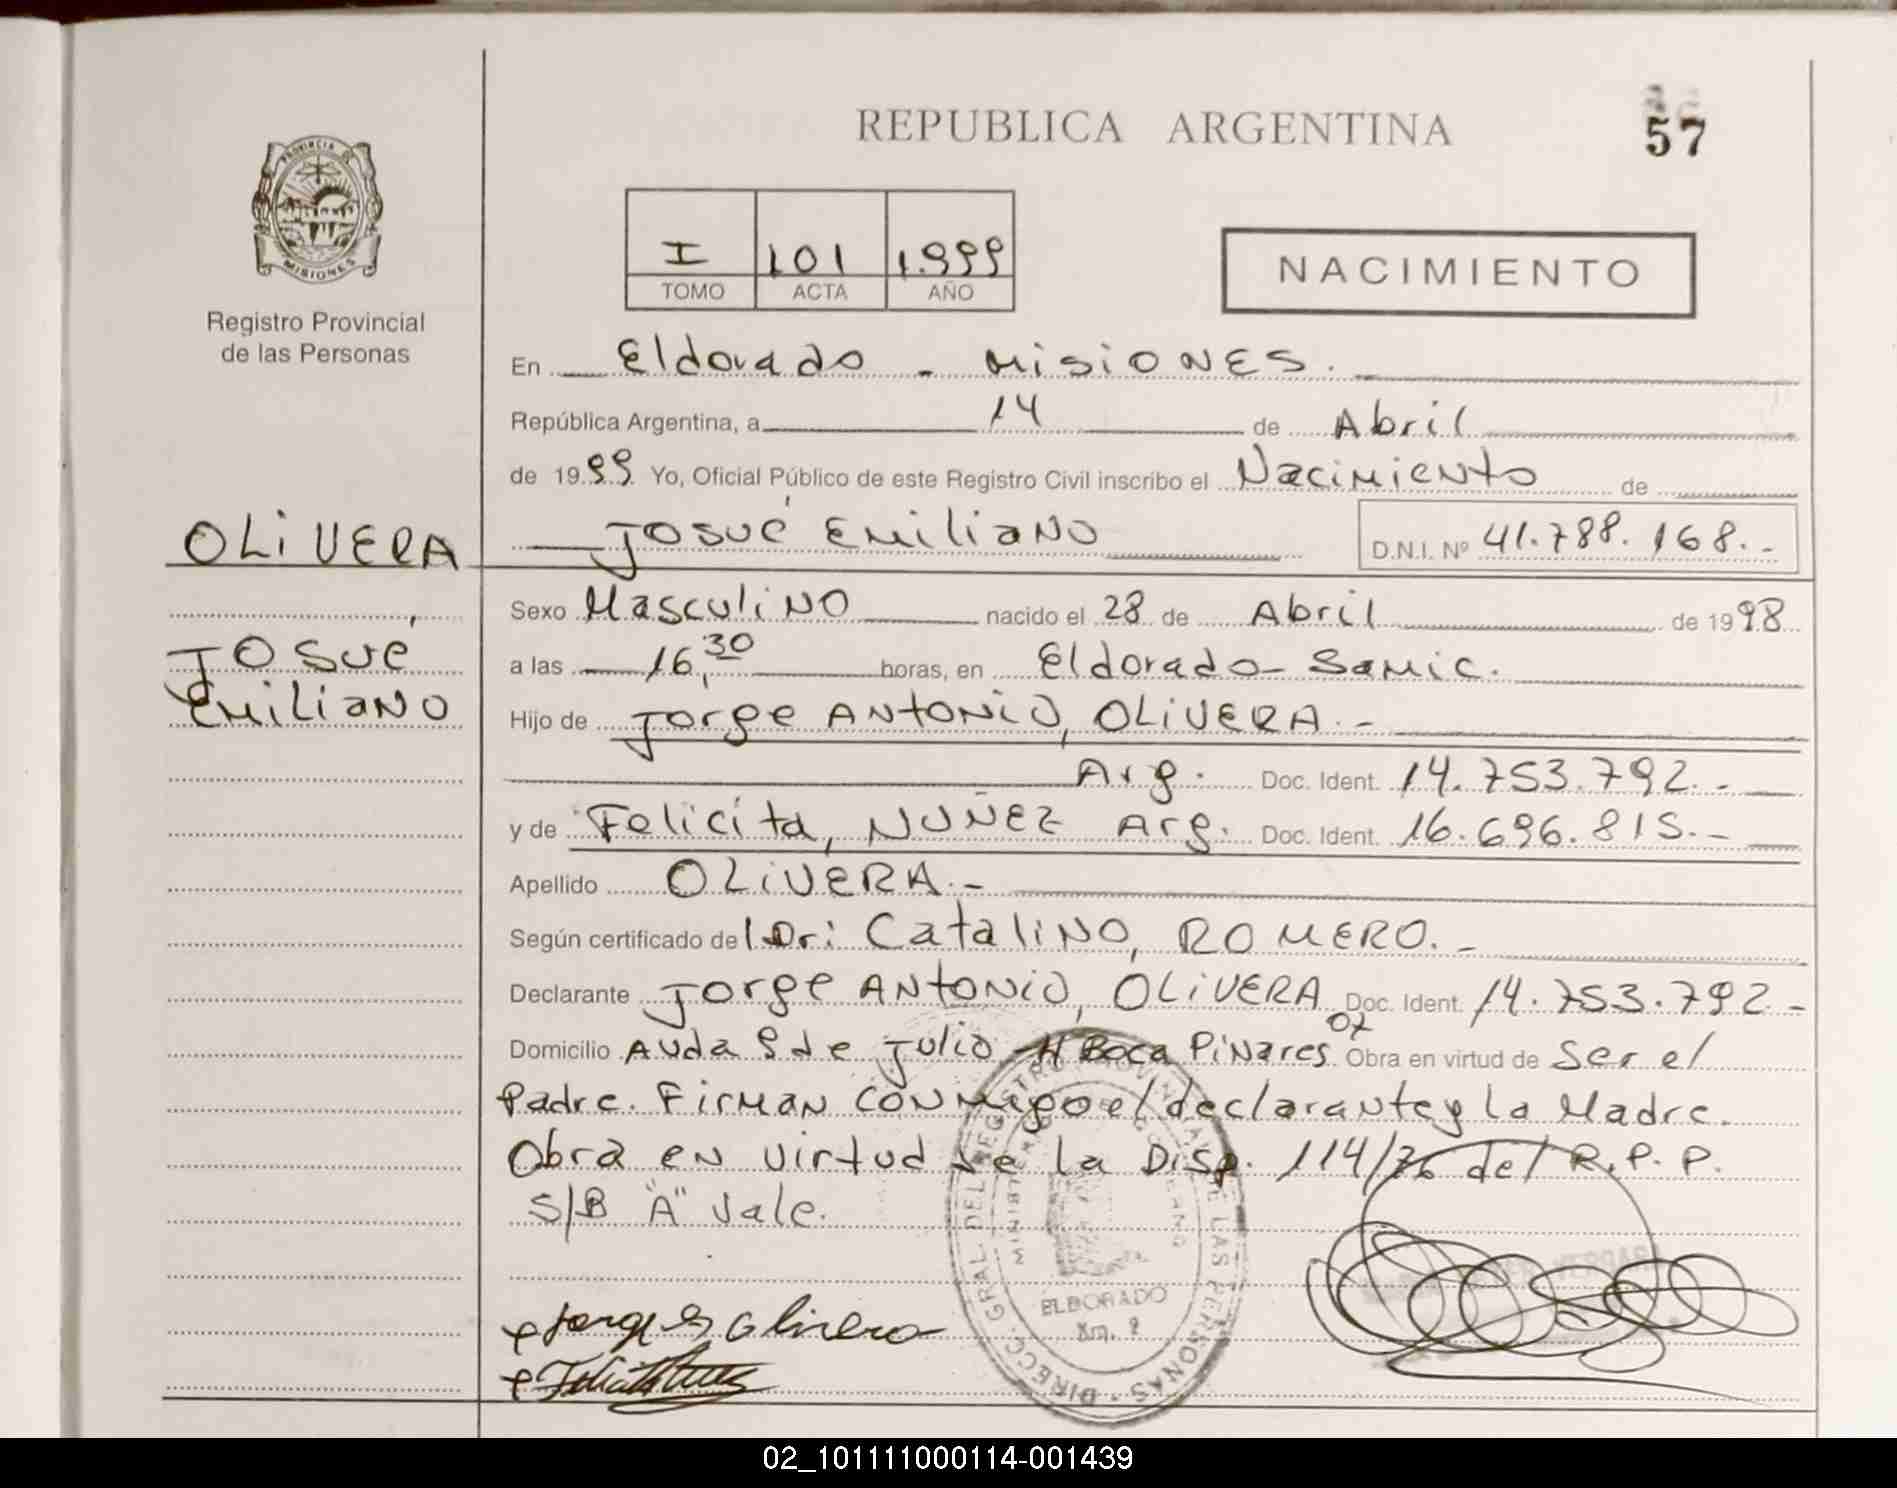 REPUBLICA ARGENTINA
57
PROVINCIA DE
MISIONES
Registro Provincial
de las Personas
I 101 1.999
TOMO ACTA AÑO
NACIMIENTO
En Eldorado - MisiONES.
República Argentina, a 14 de Abril
de 1999 Yo, Oficial Público de este Registro Civil inscribo el Nacimiento de
OLiVERA
Josué Emiliano D.N.I. Nº 41.788.168.-
Josué
Emiliano
Sexo Masculino nacido el 28 de Abril de 1998
a las 16,30 horas, en Eldorado - Samic.
Hijo de Jorge Antonio, OLiVERA.-
Arg. Doc. Ident. 14.753.792.-
y de Felicita, NUÑEZ Arg. Doc. Ident. 16.696.815.-
Apellido OLiVERA.-
Según certificado de Dr: Catalino, ROMERO.-
Declarante Jorge Antonio, OLiVERA Doc. Ident. 14.753.792-
Domicilio Avda 9 de Julio Boca Pinares 07 Obra en virtud de Ser el
Padre. Firman conmigo el declarante y la Madre.
Obra en virtud de la Disp. 114/76 del R.P.P.
S/B "A" Vale.
DIRECC. GRAL. DEL REGISTRO PROVINCIAL DE LAS PERSONAS
MINISTERIO DE GOBIERNO
ELDORADO
Km. 9
Olivera
02_101111000114-001439